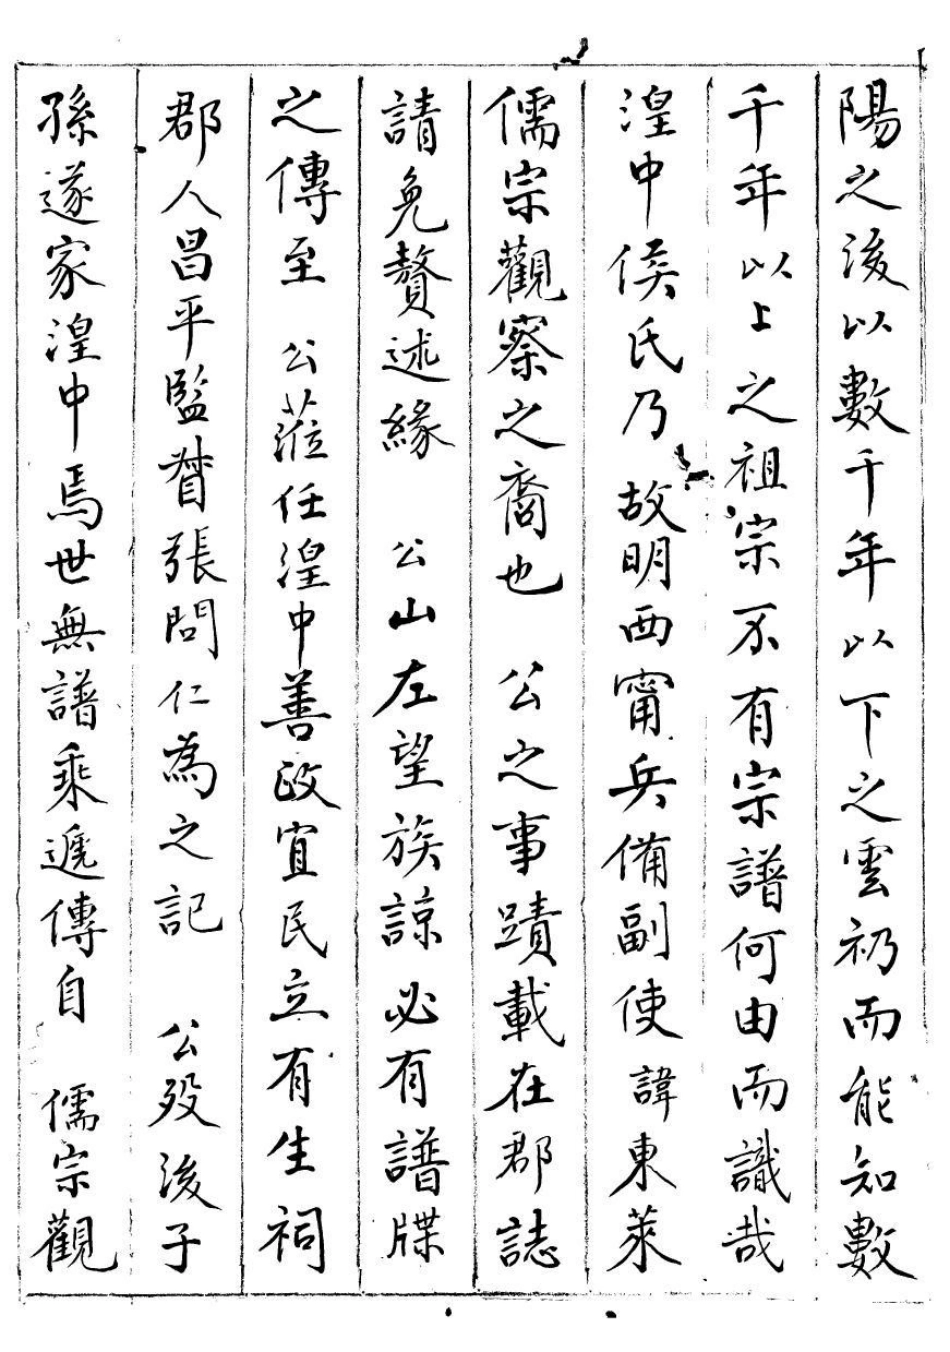 陽之後以數千年以下之雲礽而能知數
千年以上之祖宗不有宗譜何由而識哉
湟中侯氏乃故明西甯兵備副使諱東萊
儒宗觀察之裔也　公之事蹟載在郡誌
請免贅述緣　公山左望族諒必有譜牒
之傳至　公蒞任湟中善政宜民立有生祠
郡人昌平監督張問仁為之記　公歿後子
孫遂家湟中焉世無譜乘遞傳自　儒宗觀